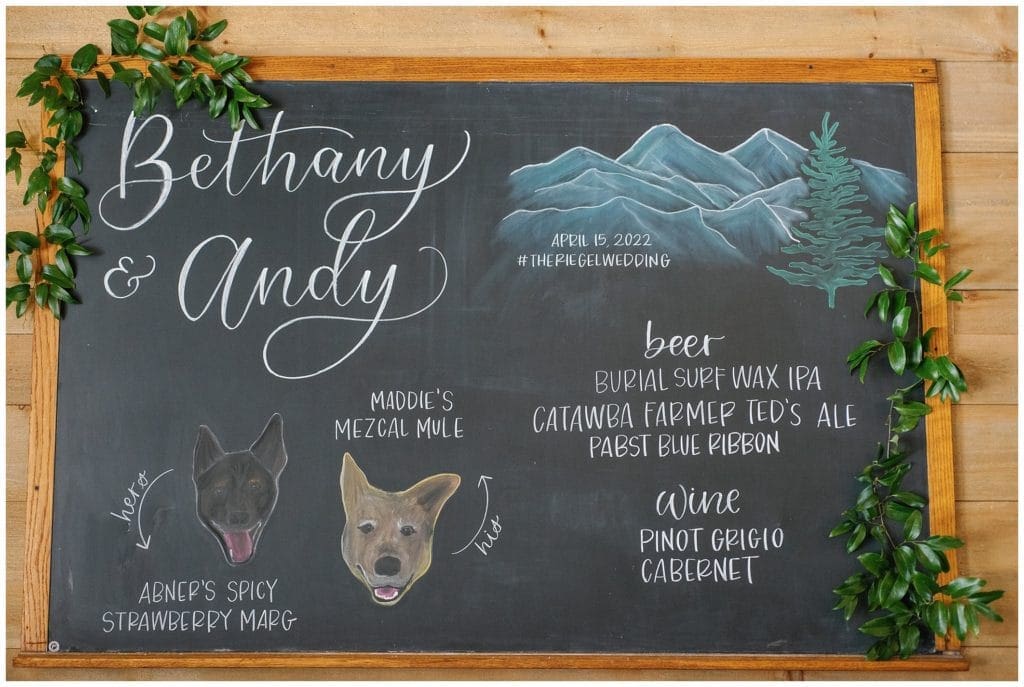 Bethany
& Andy
APRIL 15, 2022
#THERIEGELWEDDING
beer
BURIAL SURF WAX IPA
CATAWBA FARMER TED'S ALE
PABST BLUE RIBBON
wine
PINOT GRIGIO
CABERNET
MADDIE'S
MEZCAL MULE
his
hers
ABNER'S SPICY
STRAWBERRY MARG